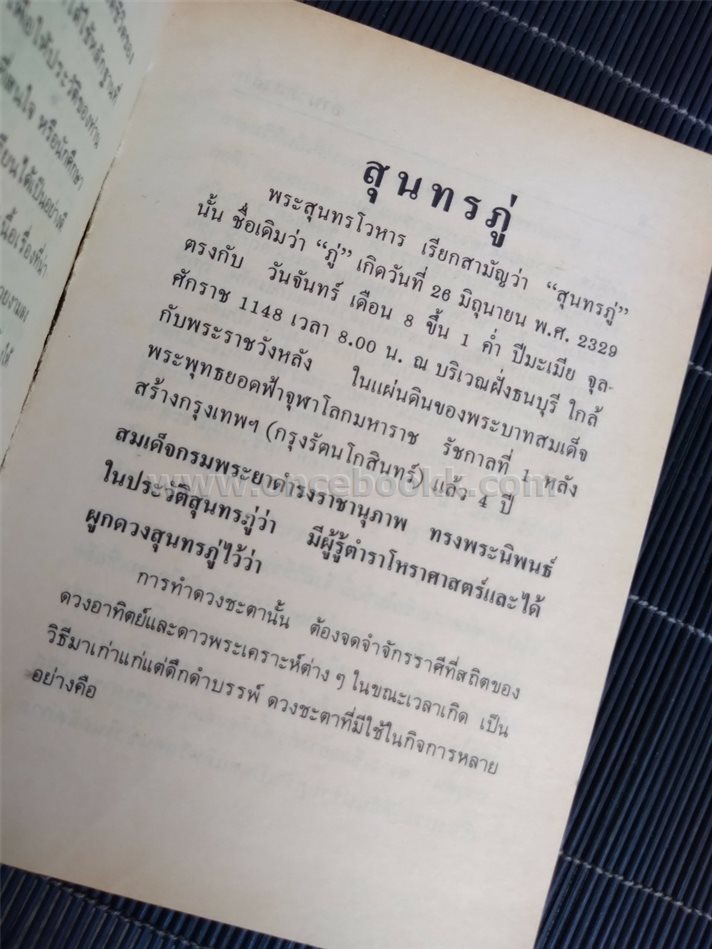 ที่สนใจ หรือนักศึกษา
สุนทรภู่
พระสุนทรโวหาร เรียกสามัญว่า “สุนทรภู่”
นั้น ชื่อเดิมว่า “ภู่” เกิดวันที่ 26 มิถุนายน พ.ศ. 2329
ตรงกับ วันจันทร์ เดือน 8 ขึ้น 1 ค่ำ ปีมะเมีย จุล-
ศักราช 1148 เวลา 8.00 น. ณ บริเวณฝั่งธนบุรี ใกล้
กับพระราชวังหลัง ในแผ่นดินของพระบาทสมเด็จ
พระพุทธยอดฟ้าจุฬาโลกมหาราช รัชกาลที่ 1 หลัง
สร้างกรุงเทพฯ (กรุงรัตนโกสินทร์) แล้ว 4 ปี
สมเด็จกรมพระยาดำรงราชานุภาพ ทรงพระนิพนธ์
ในประวัติสุนทรภู่ว่า มีผู้รู้ตำราโหราศาสตร์และได้
ผูกดวงสุนทรภู่ไว้ว่า
การทำดวงชะตานั้น ต้องจดจำจักรราศีที่สถิตของ
ดวงอาทิตย์และดาวพระเคราะห์ต่าง ๆ ในขณะเวลาเกิด เป็น
วิธีมาเก่าแก่แต่ดึกดำบรรพ์ ดวงชะตาที่มีใช้ในกิจการหลาย
อย่างคือ
www.oncebookk.com